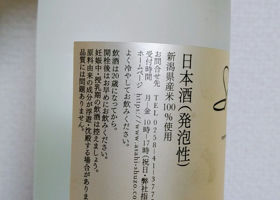 日本酒(発泡性)
新潟県産米100%使用
お問合せ先 TEL0258-41-377
受付時間 月~金 10時~17時(祝日・弊社指
ホームページ http://www.asahi-shuzo.
よく冷やしてお飲みください。
飲酒は20歳になってから。
開栓後はお早めにお飲みください。
妊娠中・授乳期の飲酒は控えましょう。
原料由来の成分が浮遊・沈殿する場合がありま
品質には問題ありません。